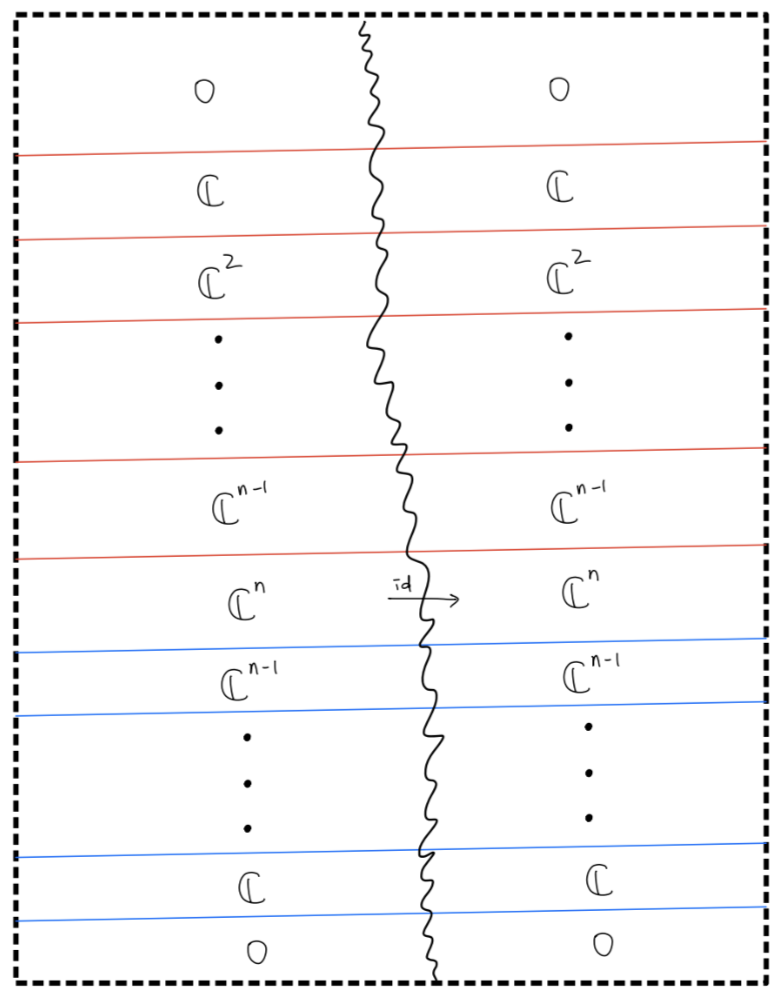 0 0
ℂ ℂ
ℂ² ℂ²
ℂⁿ⁻¹ ℂⁿ⁻¹
ℂⁿ id ℂⁿ
ℂⁿ⁻¹ ℂⁿ⁻¹
ℂ ℂ
0 0